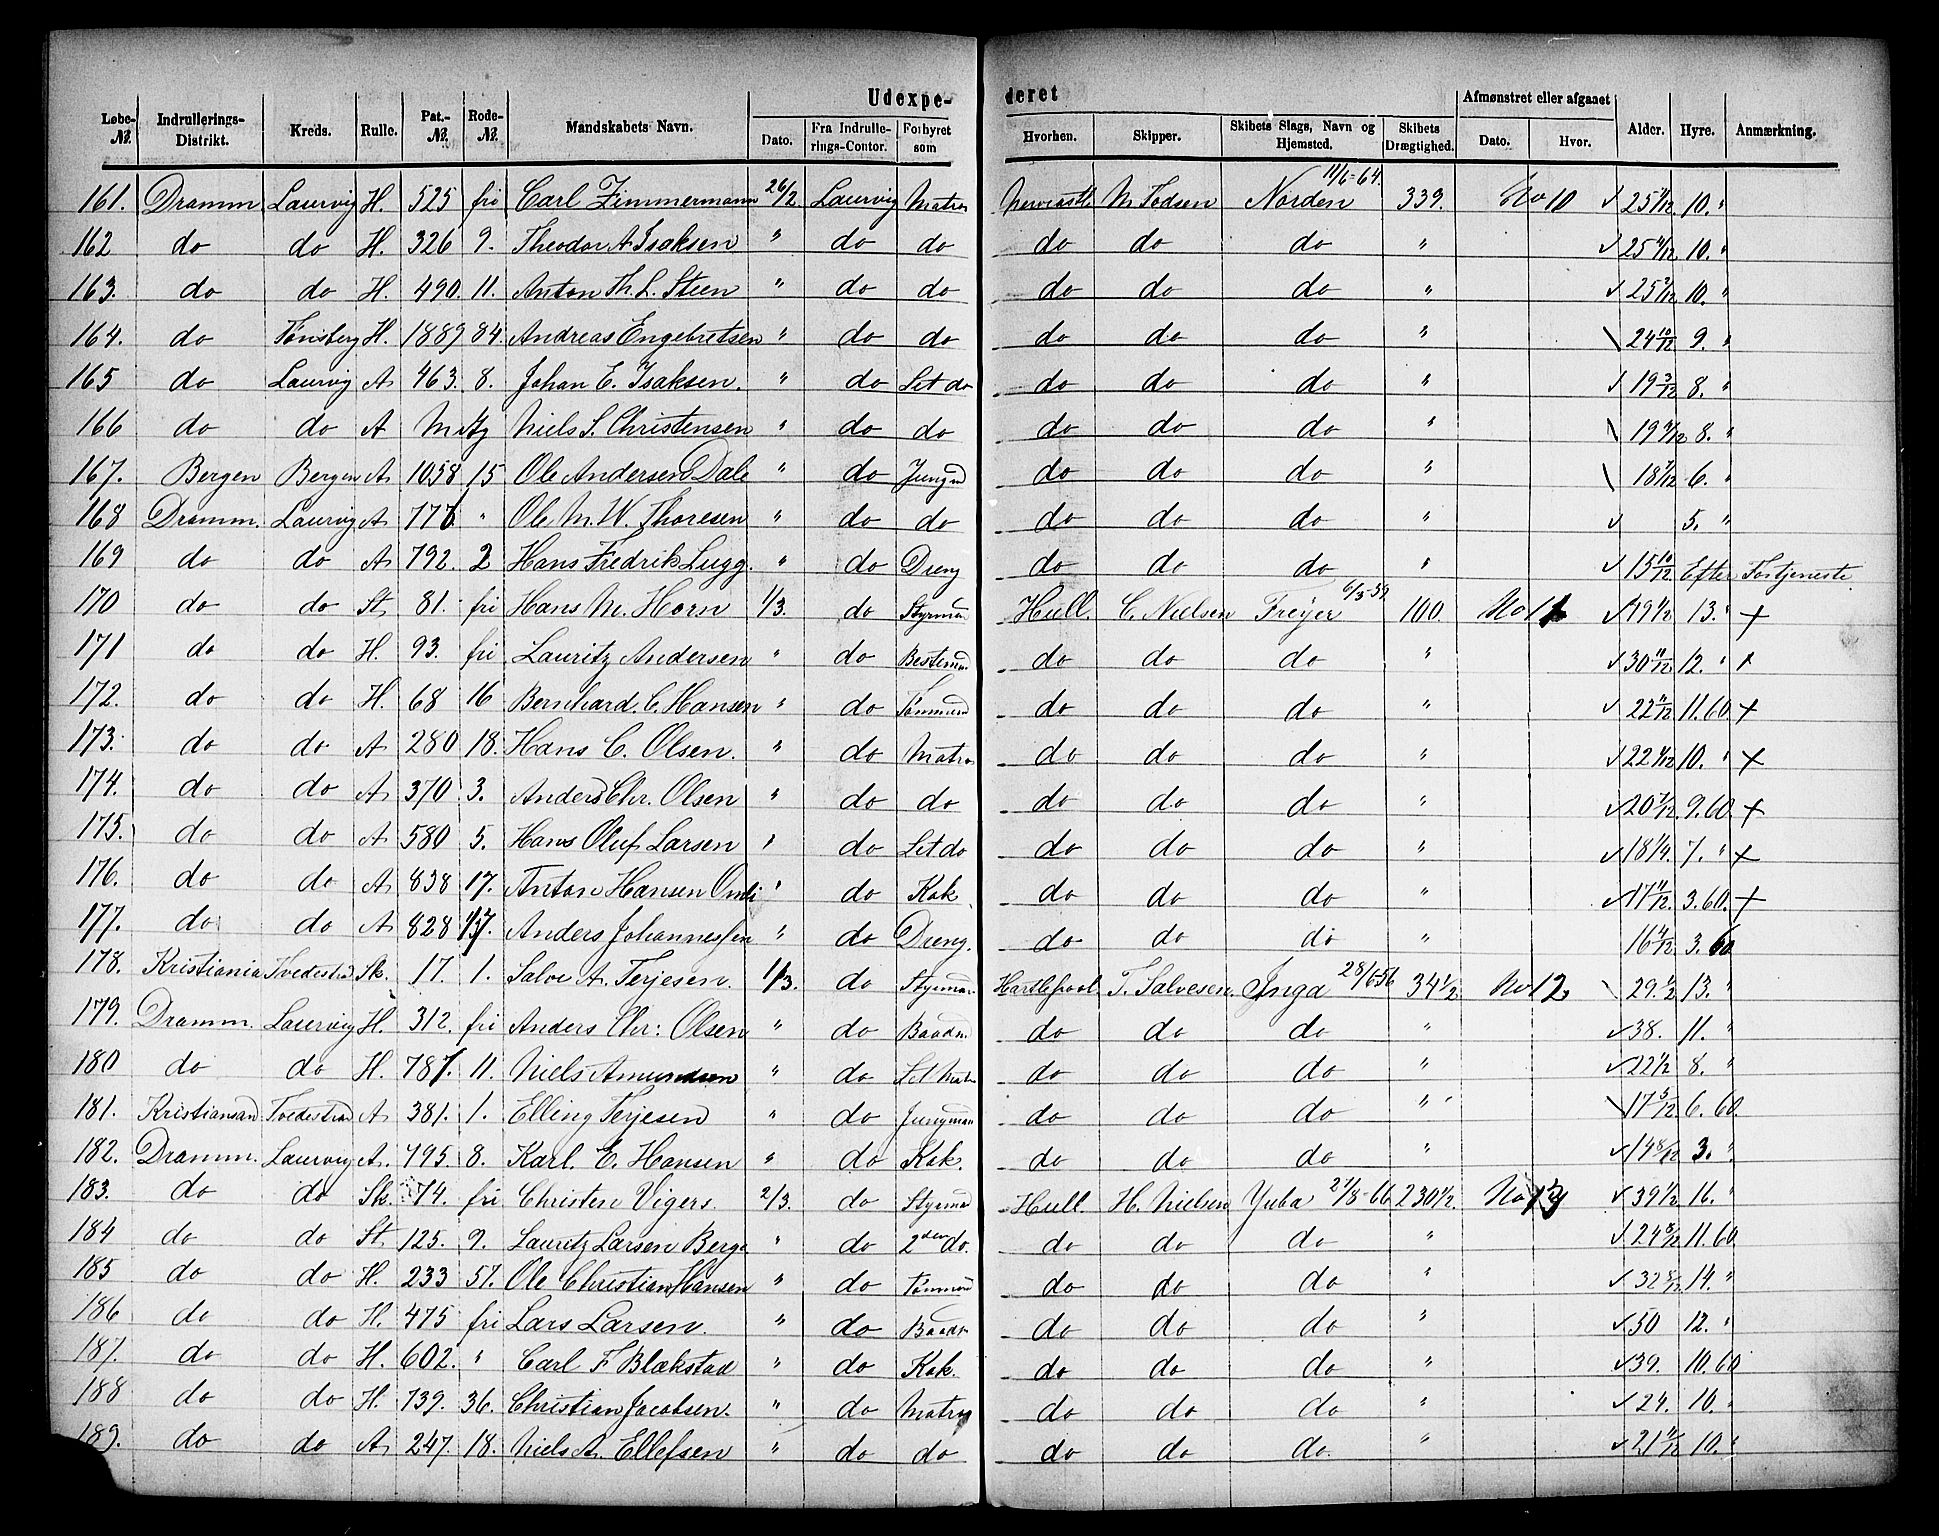 Udexpederet
Afmønstret eller afgaaet
Løbe-№. Indrullerings-Distrikt. Kreds. Rulle. Pat.-№. Rode-№. Mandskabets Navn. Dato. Fra Indrullerings-Contor. Forhyret som Hvorhen. Skipper. Skibets Slags, Navn og Hjemsted. Skibets Drægtighed. Dato. Hvor. Alder. Hyre. Anmærkning.
161. Dramm Laurvig H. 525 fri Carl Zimmermann 26/2 Laurvig Matros Newcastle M Todsen Norden 11/6-64. 339. No 10 25 11/12 10. "
162 do do H. 326 9. Theodor A. Isaksen " do do do do do " 25 11/12 10. "
163. do do H. 490. 11. Anton Th. L. Steen " do do do do do " 25 2/12 10. "
164. do Tønsberg H. 1889 84. Andreas Engebretsen " do do do do do " 24 10/12 9. "
165 do Laurvig A 463. 8. Johan E. Isaksen. " do Let do do do do " 19 3/12 8. "
166 do do A Niels S. Christensen " do do do do do " 19 9/12 8. "
167. Bergen Bergen A 1058 15 Ole Andersen Dale " do Jungmd do do do " 18 7/12 6. "
168 Dramm. Laurvig A " Ole M. W. Thoresen " do do do do do " 5. "
169 do do A 792. 2 Hans Fredrik Lugg. " do Dreng do do do " 15 10/12 Efter Fortjeneste
170 do do St. 81. fri Hans M. Horn 1/3. do Styrmand Hull. C. Nielsen Freyer 6/3-59 100. No 11 19 1/2 13. " +
171 do do H. 93. fri Lauritz Andersen " do Bestemd do do do " 30 11/12 12. " +
172. do do H. 68 16 Bernhard. C. Hansen " do Tømmmd do do do " 22 11/12 11.60 +
173. do do A 280 18. Hans C. Olsen. " do Matros do do do " 22 1/12 10. " +
174. do do A 370. 3. Anders Chr. Olsen " do do do do do " 20 7/12 9.60. +
175. do do A 580 5. Hans Oluf Larsen " do Let do do do do " 18 1/4. 7. " +
176. do do A 838 17. Anton Hansen Omli " do Kok do do do " 17 11/12. 3.60. +
177. do do A 828 Anders Johannessen " do Dreng. do do do " 16 4/12 3.60
178. Kristiania Tvedestrand Sk. 17. 1. Salve A. Terjesen. 1/3. do Styrmand Hartlepool. T. Salvesen. Inga 34 1/2 No 12 29. 1/2 13. "
179. Dramm. Laurvig H. 312. fri Anders Chr: Olsen " do Baadsmd do do do " 38. 11. "
180 do do H. 787. 11. Niels Amundsen " do Let Matr do do do " 22 1/2 8. "
181. Kristiansand Tvedestrand A 381. 1. Elling Terjesen " do Jungmand do do do " 17 5/12 6.60.
182. Dramm. Laurvig A. 795. 8. Karl. E. Hansen " do Kok. do do do " 14 8/12 3. "
183. do do Sk. 74. fri Christen Vigers. 2/3. do Styrmd Hull. H. Nielsen Yuba 230 1/2. 39 1/2 16. "
184 do do St. 125. 9. Lauritz Larsen Berge " do 2den do. do do do " 24 8/12 11.60
185 do do H. 233 57. Ole Christian Hansen " do Tømmmd do do do " 32 8/12 14. "
186 do do H. 475 fri Lars Larsen. " do Baadsm do do do " 50 12. "
187. do do H. 602. " Carl F Blakstad " do Kok. do do do " 39. 10.60
188 do do H. 739. 36. Christian Jacobsen. " do Matros do do do " 24. 10. "
189. do do A 247. 18. Niels A. Ellefsen " do do do do do. " 21 11/12 10. "